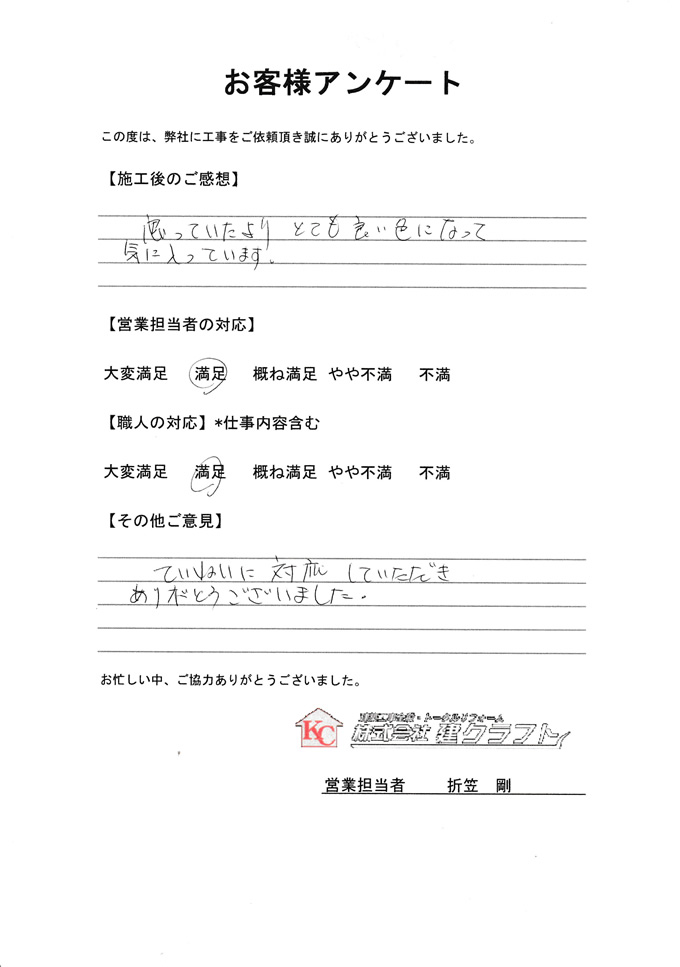 お客様アンケート
この度は、弊社に工事をご依頼頂き誠にありがとうございました。
【施工後のご感想】
思っていたより とても良い色になって
気に入っています。
【営業担当者の対応】
大変満足 満足 概ね満足 やや不満 不満
【職人の対応】*仕事内容含む
大変満足 満足 概ね満足 やや不満 不満
【その他ご意見】
ていねいに 対応 していただき
ありがとうございました。
お忙しい中、ご協力ありがとうございました。
・トータルリフォーム
KC 株式会社 建クラフト
営業担当者 折笠 剛